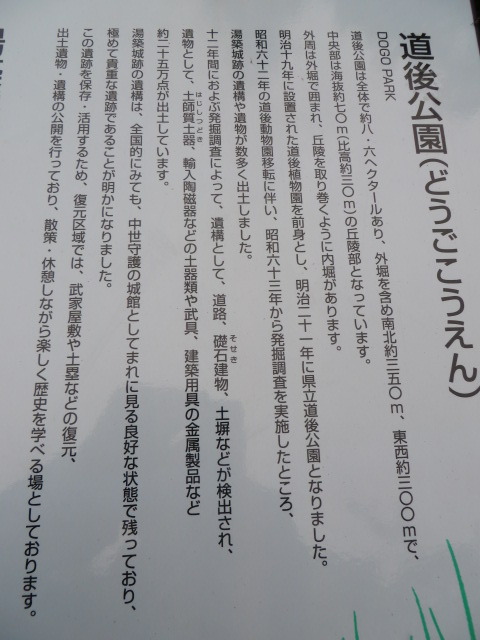 道後公園(どうごこうえん)
DOGO PARK
道後公園は全体で約八・六ヘクタールあり、外堀を含め南北約三五〇m、東西約三〇〇mで、
中央部は海抜約七〇m(比高約三〇m)の丘陵部となっています。
外周は外堀で囲まれ、丘陵を取り巻くように内堀があります。
明治十九年に設置された道後植物園を前身とし、明治二十一年に県立道後公園となりました。
昭和六十二年の道後動物園移転に伴い、昭和六十三年から発掘調査を実施したところ、
湯築城跡の遺構や遺物が数多く出土しました。
十二年間におよぶ発掘調査によって、遺構として、道路、礎石建物、土塀などが検出され、
そせき
遺物として、土師質土器、輸入陶磁器などの土器類や武具、建築用具の金属製品など
はじしつどき
約二十五万点が出土しています。
湯築城跡の遺構は、全国的にみても、中世守護の城館としてまれに見る良好な状態で残っており、
極めて貴重な遺跡であることが明かになりました。
この遺跡を保存・活用するため、復元区域では、武家屋敷や土塁などの復元、
出土遺物・遺構の公開を行っており、散策・休憩しながら楽しく歴史を学べる場としております。